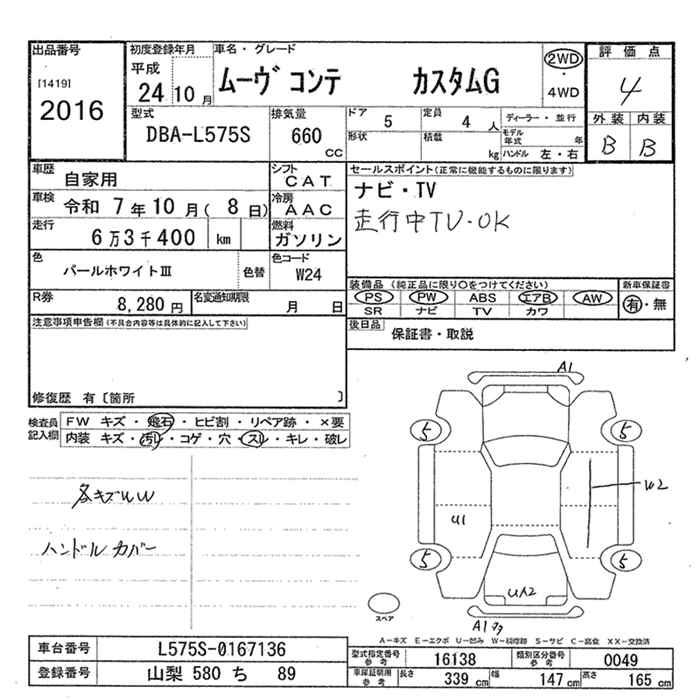 出品番号
[1419]
2016
初度登録年月
平成
24 10 月
車名・グレード
ムーヴ コンテ カスタムG
2WD
・
4WD
評価点
4
外装 内装
B B
型式
DBA-L575S
排気量
660
cc
ドア
5
定員
4 人
形状
積載
kg
ディーラー・並行
モデル年式 年
ハンドル 左・右
車歴
自家用
シフト
CAT
車検
令和 7 年 10 月( 8 日)
冷房
AAC
走行
6 万 3 千 400 km
燃料
ガソリン
色
パールホワイトⅢ
色替
色コード
W24
R券
8,280 円
名変通知期限
月 日
セールスポイント(正常に機能するものに限ります)
ナビ・TV
走行中TV・OK
装備品 (純正品に限り○をつけてください)
PS PW ABS エアB AW
SR ナビ TV カワ
新車保証書
有・無
後日品
保証書・取説
注意事項申告欄(不具合内容等は具体的に記入して下さい)
修復歴 有〔箇所 〕
検査員
記入欄
FW キズ・飛石・ヒビ割・リペア跡・×要
内装 キズ・汚レ・コゲ・穴・スレ・キレ・破レ
ハンドル カバー
A1
5
5
W2
U1
5
5
スペア
A-キズ E-エクボ U-凹み W-補修跡 S-サビ C-腐食 XX-交換済
車台番号
L575S-0167136
登録番号
山梨 580 ち 89
型式指定番号
参考
16138
類別区分番号
参考
0049
車庫証明用
参考
長さ 339 cm
幅 147 cm
高さ 165 cm